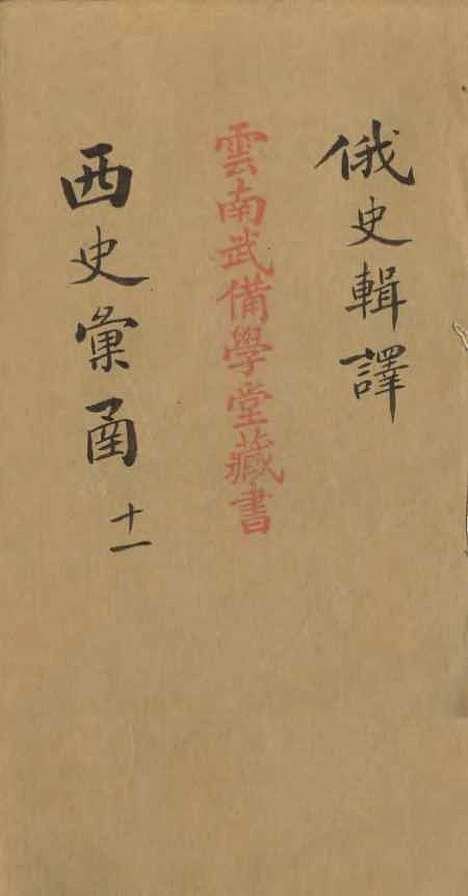 俄史輯譯
雲南武備學堂藏書
西史彙函 十一